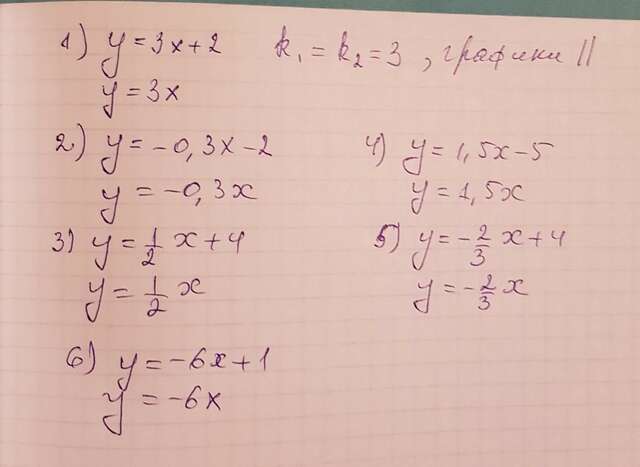 1) y = 3x + 2 k₁ = k₂ = 3 , графики ||
y = 3x
2) y = -0,3x - 2
y = -0,3x
3) y = 1/2 x + 4
y = 1/2 x
4) y = 1,5x - 5
y = 1,5x
5) y = -2/3 x + 4
y = -2/3 x
6) y = -6x + 1
y = -6x